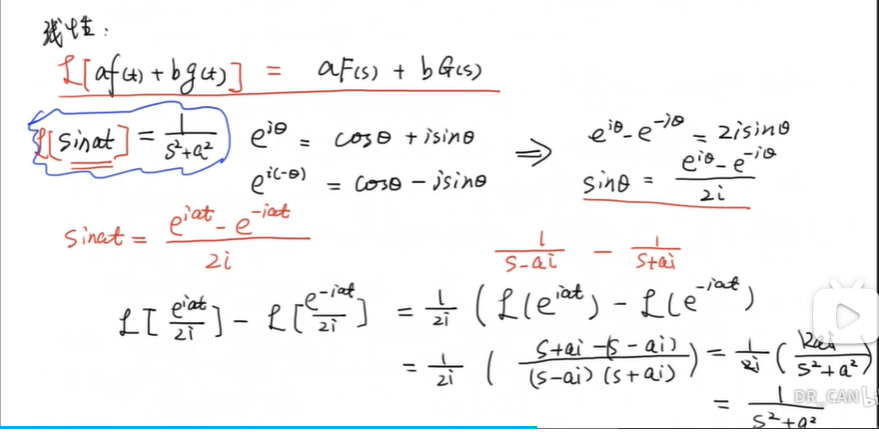 线性:
ℒ[af(t) + bg(t)] = aF(s) + bG(s)
ℒ[sinat] = 1/(s²+a²)
e^{iθ} = cosθ + isinθ ⇒ e^{iθ} - e^{-iθ} = 2isinθ
e^{i(-θ)} = cosθ - isinθ
sinθ = (e^{iθ} - e^{-iθ})/2i
sinat = (e^{iat} - e^{-iat})/2i
1/(s-ai) - 1/(s+ai)
ℒ[e^{iat}/2i] - ℒ[e^{-iat}/2i] = 1/2i (ℒ(e^{iat}) - ℒ(e^{-iat}))
= 1/2i ((s+ai-(s-ai))/((s-ai)(s+ai))) = 1/2i (2ai/(s²+a²))
= 1/(s²+a²)
DR_CAN